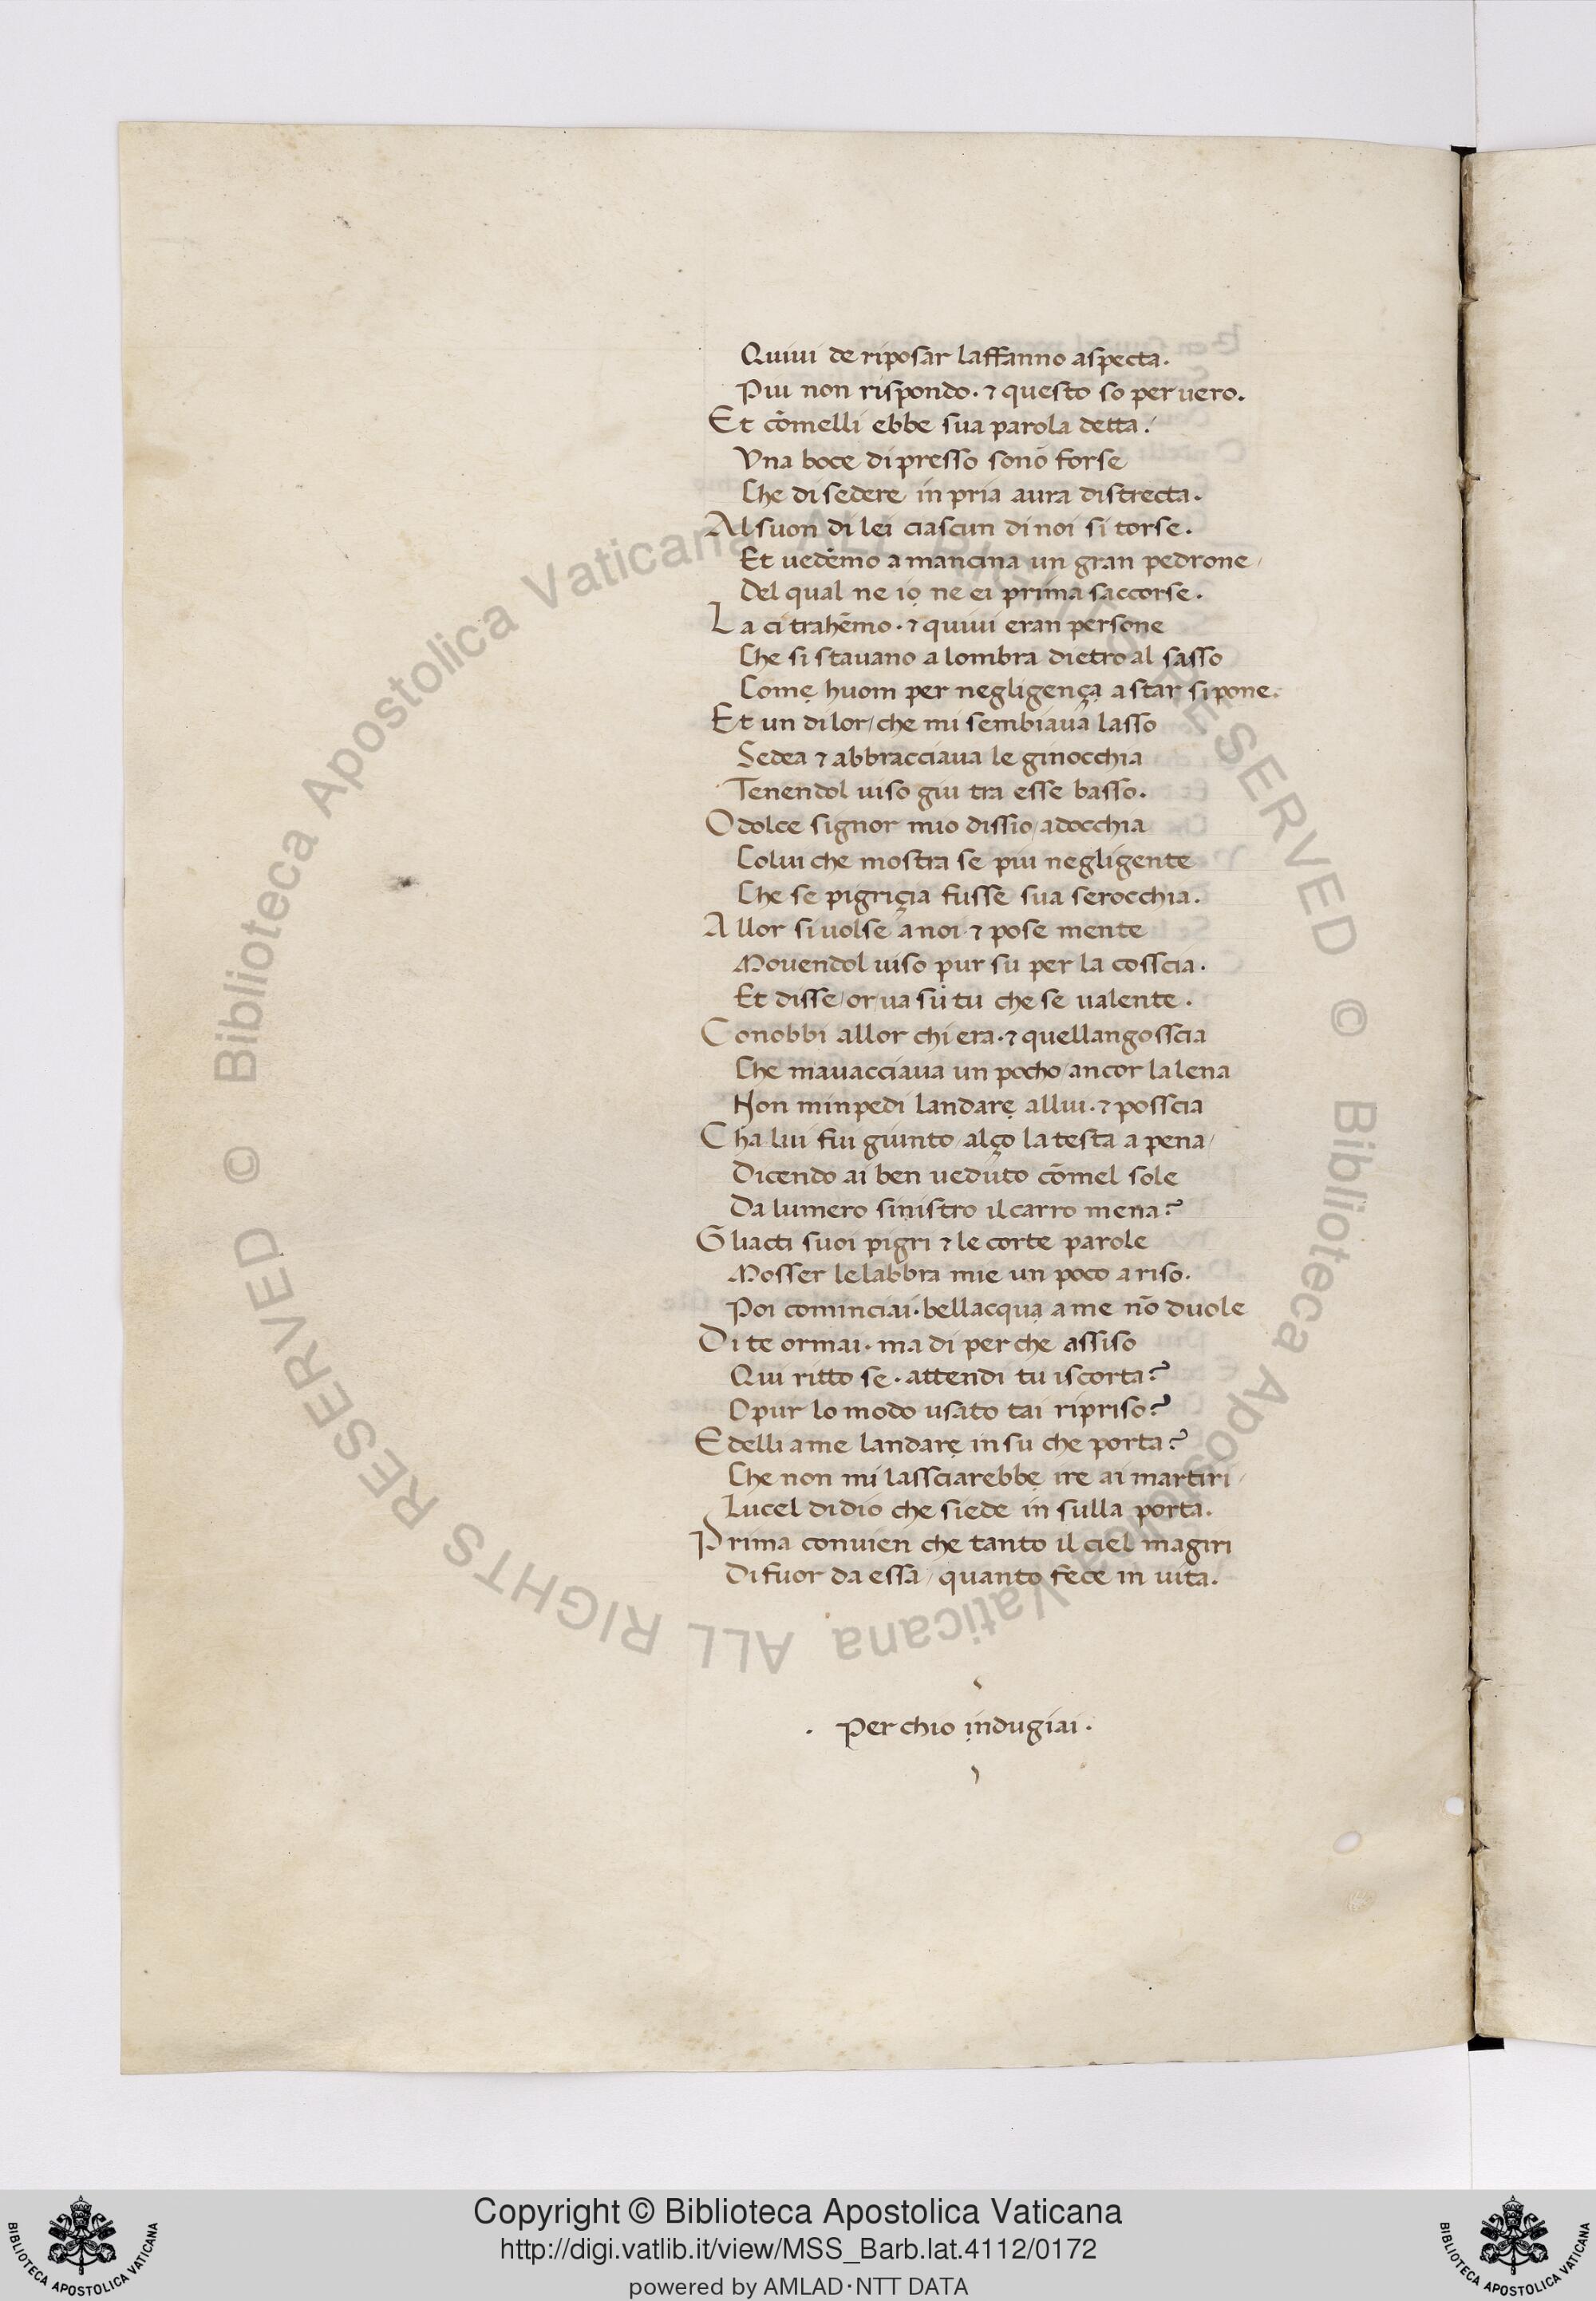 Quiui de riposar laffanno aspecta.
Piu non rispondo. ⁊ questo so per uero.
Et cōmelli ebbe sua parola detta.
Vna boce di presso sonò forse
Che di sedere in pria aura distrecta.
Al suon di lei ciascun di noi si torse.
Et uedēmo a mancina un gran pedrone/
Del qual ne iọ ne ei prima saccorse.
La ci trahēmo. ⁊ quiui eran persone
Che si stauano a lombra dietro al sasso
Comẹ huom per negligençạ a star si pone.
Et un di lor/ che mi sembiaua lasso
Sedea ⁊ abbracciaua le ginocchia
Tenendol uiso giu tra esse basso.
O dolce signor mio dissio/ adocchia
Colui che mostra se piu negligente
Che se pigriçia fusse sua serocchia.
Allor si uolse a noi ⁊ pose mente
Mouendol uiso pur su per la cosscia.
Et disse/ or ua sù tu che se ualente.
Conobbi allor chi era. ⁊ quellangosscia
Che mauacciaua un pocho/ ancor la lena
Non minpedi landarẹ allui. ⁊ posscia
Cha lui fui giunto/ alço la testa a pena/
Dicendo ai ben ueduto cōmel sole
Da lumero sinistro il carro mena?
Gliacti suoi pigri ⁊ le corte parole
Mosser le labbra mie un poco a riso.
Poi cominciai. bellacquạ a me nō duole
Di te ormai. ma di perche assiso
Qui ritto se. attendi tu iscorta?
O pur lo modo usato tai ripriso?
Edelli a me landarẹ in su che porta?
Che non mi lassciarebbẹ ire ai martiri/
Lucel didio che siede in sulla porta.
Prima conuien che tanto il ciel magiri
Di fuor da essa/ quanto fece in uita.
. Per chio ịndugiai .
Copyright © Biblioteca Apostolica Vaticana
http://digi.vatlib.it/view/MSS_Barb.lat.4112/0172
powered by AMLAD·NTT DATA
BIBLIOTECA APOSTOLICA VATICANA
BIBLIOTECA APOSTOLICA VATICANA
© Biblioteca Apostolica Vaticana ALL RIGHTS RESERVED © Biblioteca Apostolica Vaticana ALL RIGHTS RESERVED